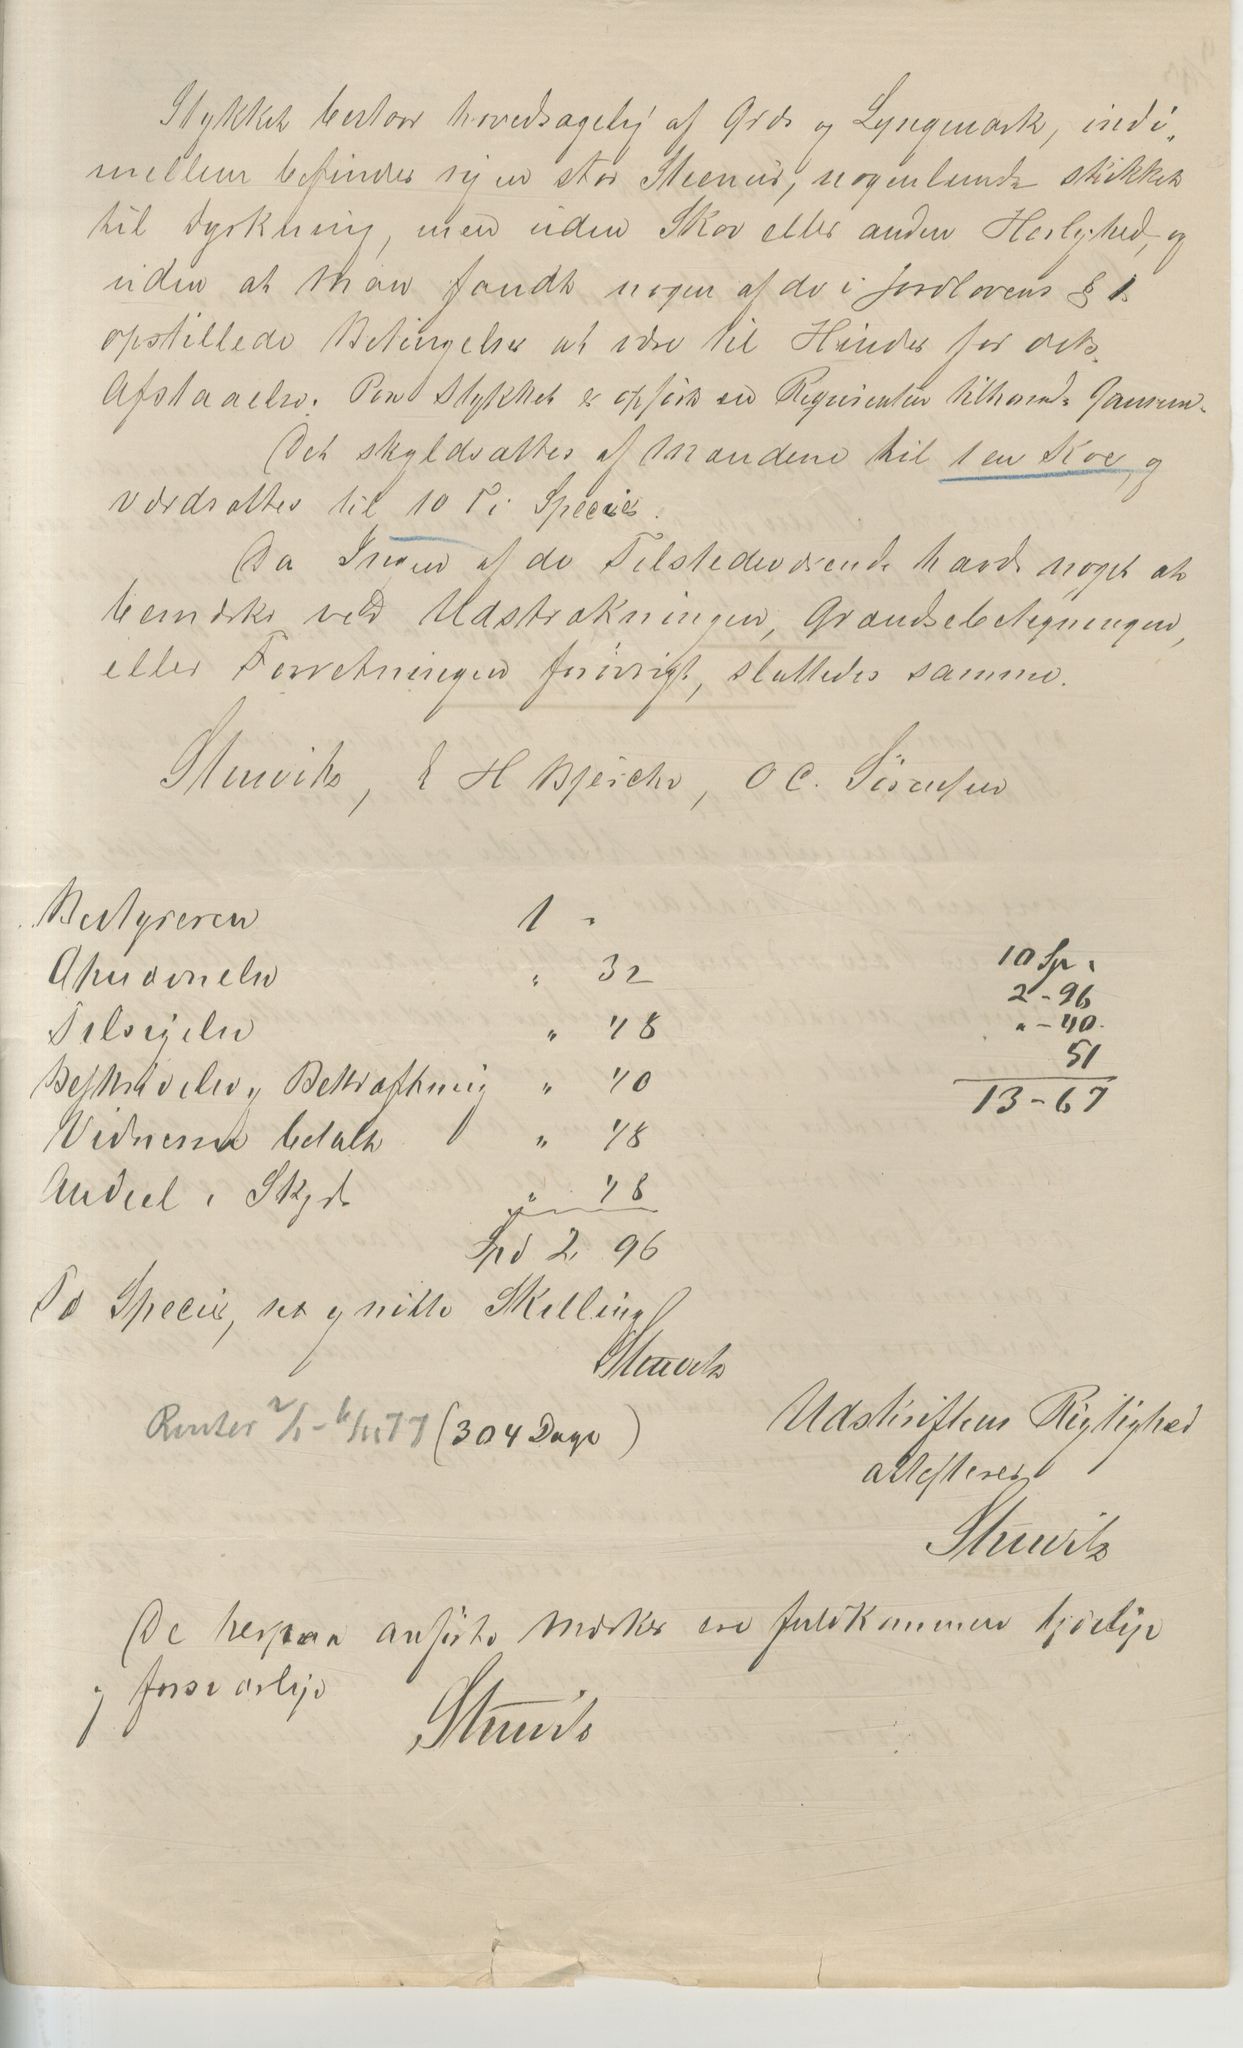 Stykket bestaar hovedsagelig af Græs og Lyngmark, indi„
mellem befindes sig en stor Steenur, nogenlunde skikket
til Dyrkning, men uden Skov eller anden Herlighed, og
uden at man fandt nogen af de i Jordlovens § 1
opstillede Betingelser at være til Hinder for dets
Afstaaelse. Paa Stykket er opført en Reqvirenten tilhørende Gamme.
Det skyldsattes af Mændene til 1 en Koe, og
værdsattes til 10 Ti Species.
Da Ingen af de Tilstedeværende havde noget at
bemærke ved Udstrækningen, Grændsebetegningen,
eller Forretningen forøvrigt, sluttedes samme.
Stuwitz, E H Bjerche, O C. Sørensen
Bestyreren 1 „
Ahndvnelse „ 32
Tilsigelse „ 48
Beskrivelse og Bekræftning „ 40
Vidnerne betalt „ 48
Andeel i Skyds „ 48
Spd 2. 96
To Species, sex og nitti Skilling
Stuwitz
10 Sp „
2 - 96
„ - 40.
51
13 - 67
Renter 2/1 - 77 (304 Dage)
Udskriftens Rigtighed
attesteres
Stuwitz
De herpaa anførte Mærker ere fuldkommen kjendelige
og forsvarlige
Stuwitz